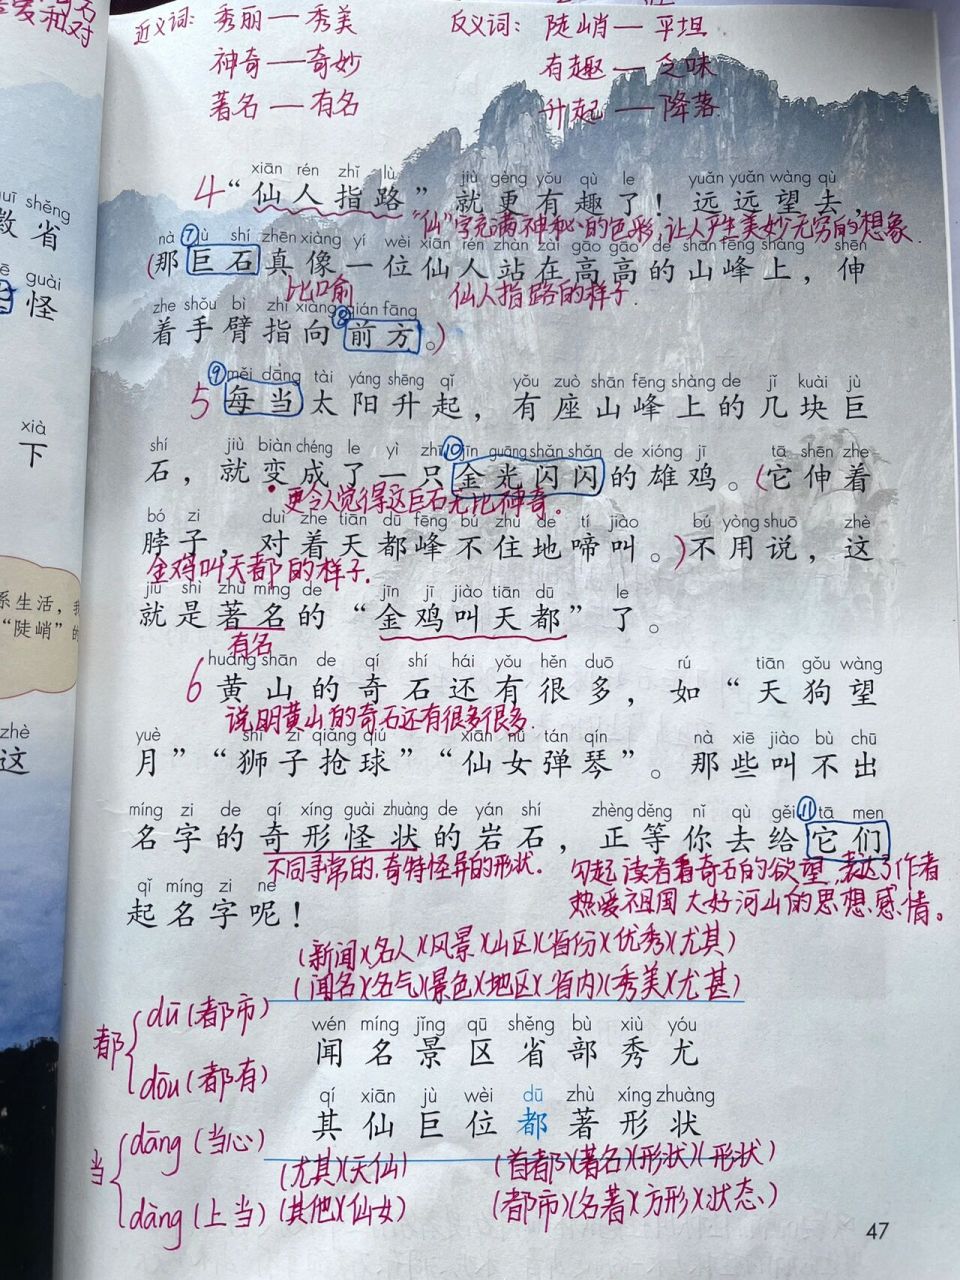 近义词：秀丽—秀美 反义词：陡峭—平坦
神奇—奇妙 有趣—乏味
著名—有名 升起—降落
xiān rén zhǐ lù jiù gèng yǒu qù le yuǎn yuǎn wàng qù
4 “仙人指路”就更有趣了！远远望去，
“仙”字充满神秘的色彩，让人产生美妙无穷的想象.
nà ⑦jù shí zhēn xiàng yí wèi xiān rén zhàn zài gāo gāo de shān fēng shàng shēn
(那巨石真像一位仙人站在高高的山峰上，伸
比喻 仙人指路的样子.
zhe shǒu bì zhǐ xiàng ⑧qián fāng
着手臂指向前方。)
⑨měi dāng tài yáng shēng qǐ yǒu zuò shān fēng shàng de jǐ kuài jù
5 每当太阳升起，有座山峰上的几块巨
shí jiù biàn chéng le yì zhī ⑩jīn guāng shǎn shǎn de xióng jī tā shēn zhe
石，就变成了一只金光闪闪的雄鸡。(它伸着
更令人觉得这巨石无比神奇。
bó zi duì zhe tiān dū fēng bú zhù de tí jiào bú yòng shuō zhè
脖子，对着天都峰不住地啼叫。)不用说，这
金鸡叫天都的样子.
jiù shì zhù míng de jīn jī jiào tiān dū le
就是著名的“金鸡叫天都”了。
有名
huáng shān de qí shí hái yǒu hěn duō rú tiān gǒu wàng
6 黄山的奇石还有很多，如“天狗望
说明黄山的奇石还有很多很多.
yuè shī zi qiǎng qiú xiān nǚ tán qín nà xiē jiào bù chū
月”“狮子抢球”“仙女弹琴”。那些叫不出
míng zi de qí xíng guài zhuàng de yán shí zhèng děng nǐ qù gěi ⑪tā men
名字的奇形怪状的岩石，正等你去给它们
不同寻常的,奇特怪异的形状. 勾起读者看奇石的欲望,表达了作者
热爱祖国大好河山的思想感情。
qǐ míng zi ne
起名字呢！
(新闻)(名人)(风景)(山区)(省份)(优秀)(尤其)
(闻名)(名气)(景色)(地区)(省内)(秀美)(尤甚)
都 dū(都市)
dōu(都有)
wén míng jǐng qū shěng bù xiù yóu
闻名景区省部秀尤
qí xiān jù wèi dū zhù xíng zhuàng
其仙巨位都著形状
当 dāng(当心)
dàng(上当)
(尤其)(天仙) (首都)(著名)(形状)(形状)
(其他)(仙女) (都市)(名著)(方形)(状态)
47
uī shěng
省
guài
怪
xià
下
系生活，
“陡峭”的
zhè
这